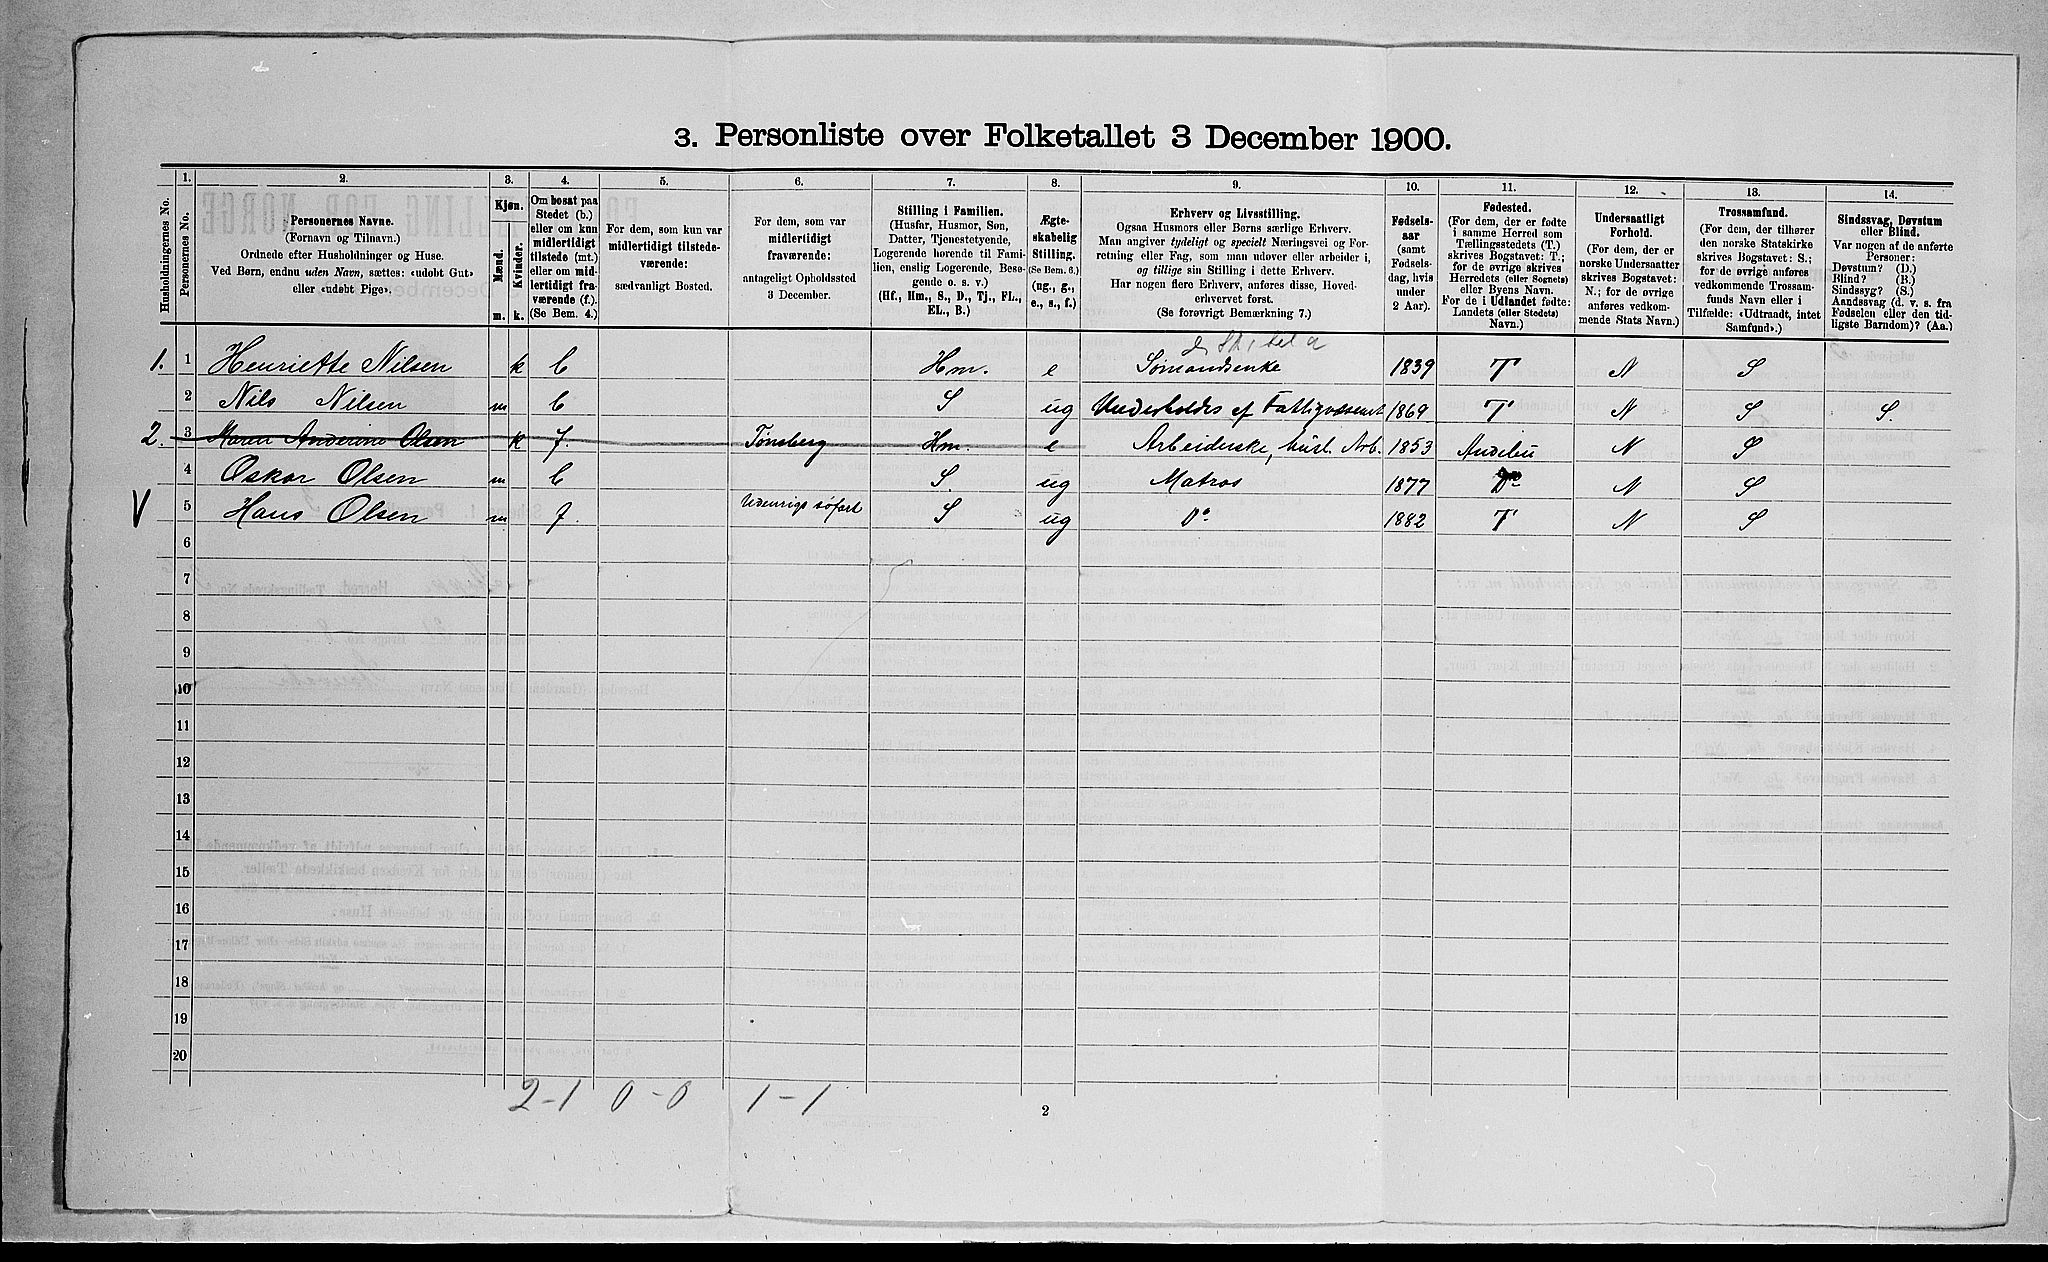 3. Personliste over Folketallet 3 December 1900.
1. 2. 3. 4. 5. 6. 7. 8. 9. 10. 11. 12. 13. 14.
Husholdningernes No.
Personernes No.
Personernes Navne.
(Fornavn og Tilnavn.)
Ordnede efter Husholdninger og Huse.
Ved Børn, endnu uden Navn, sættes: «udøbt Gut»
eller «udøbt Pige».
Kjøn.
Mænd.
Kvinder.
m. k.
Om bosat paa
Stedet (b.)
eller om kun
midlertidigt
tilstede (mt.)
eller om mid-
lertidigt fra-
værende (f.).
(Se Bem. 4.)
For dem, som kun var
midlertidigt tilstede-
værende:
sædvanligt Bosted.
For dem, som var
midlertidigt
fraværende:
antageligt Opholdssted
3 December.
Stilling i Familien.
(Husfar, Husmor, Søn,
Datter, Tjenestetyende,
Logerende hørende til Fami-
lien, enslig Logerende, Besø-
gende o. s. v.)
(Hf., Hm., S., D., Tj., FL.,
EL., B.)
Ægte-
skabelig
Stilling.
(Se Bem. 6.)
(ug., g.,
e., s., f.)
Erhverv og Livsstilling.
Ogsaa Husmors eller Børns særlige Erhverv.
Man angiver tydeligt og specielt Næringsvei og For-
retning eller Fag, som man udøver eller arbeider i,
og tillige sin Stilling i dette Erhverv.
Har nogen flere Erhverv, anføres disse, Hoved-
erhvervet først.
(Se forøvrigt Bemærkning 7.)
Fødsels-
aar
(samt
Fødsels-
dag, hvis
under
2 Aar).
Fødested.
(For dem, der er fødte
i samme Herred som
Tællingsstedets (T.)
skrives Bogstavet: T.;
for de øvrige skrives
Herredets (eller Sognets)
eller Byens Navn.
For de i Udlandet fødte:
Landets (eller Stedets)
Navn.)
Undersaatligt
Forhold.
(For dem, der er
norske Undersaatter
skrives Bogstavet:
N.; for de øvrige
anføres vedkom-
mende Stats Navn.)
Trossamfund.
(For dem, der tilhører
den norske Statskirke
skrives Bogstavet: S.;
for de øvrige anføres
vedkommende Trossam-
funds Navn eller i
Tilfælde: «Udtraadt, intet
Samfund».)
Sindssvag, Døvstum
eller Blind.
Var nogen af de anførte
Personer:
Døvstum? (D.)
Blind? (B.)
Sindssyg? (S.)
Aandssvag (d. v. s. fra
Fødselen eller den tid-
ligste Barndom)? (Aa.)
1. 1 Henriette Nilsen k b Hm. e Sømandsenke 1839 T N S
2 Nils Nilsen m b S ug Underholdes af Fattigvæsenet 1869 T N S S.
2. 3 Maren Anderine Olsen k f. Tønsberg Hm. e Arbeiderske, husl. Arb. 1853 Andebu N S
4 Oskar Olsen m b S ug Matros 1877 Do N S
V 5 Hans Olsen m f. Udenrigs søfart S ug Do 1882 T N S
6
7
8
9
10
11
12
13
14
15
16
17
18
19
20
2-1 0-0 1-1
2